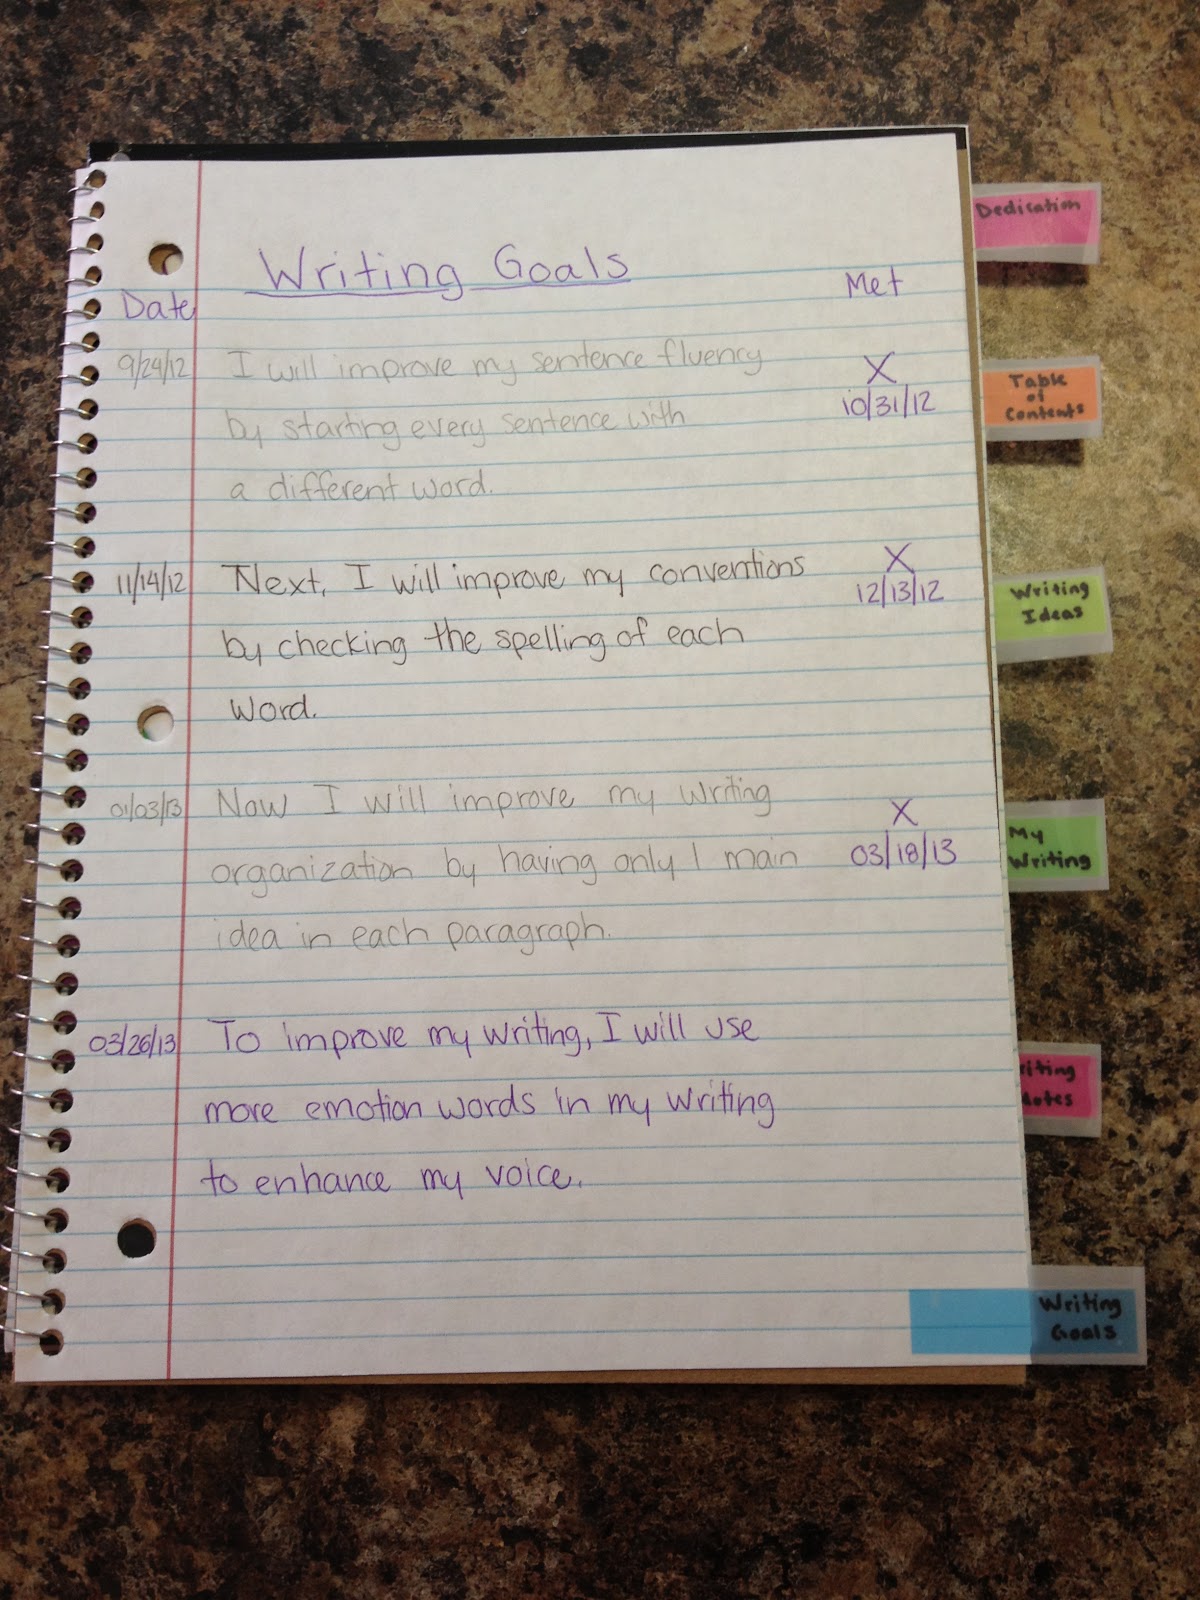 Writing Goals
Date
Met
9/24/12 I will improve my sentence fluency X
by starting every sentence with 10/31/12
a different word.
11/14/12 Next, I will improve my conventions X
12/13/12
by checking the spelling of each
word.
01/03/13 Now I will improve my writing X
organization by having only 1 main 03/18/13
idea in each paragraph.
03/26/13 To improve my writing, I will use
more emotion words in my writing
to enhance my voice.
Dedication
Table
of
Contents
Writing
Ideas
My
Writing
riting
Notes
Writing
Goals